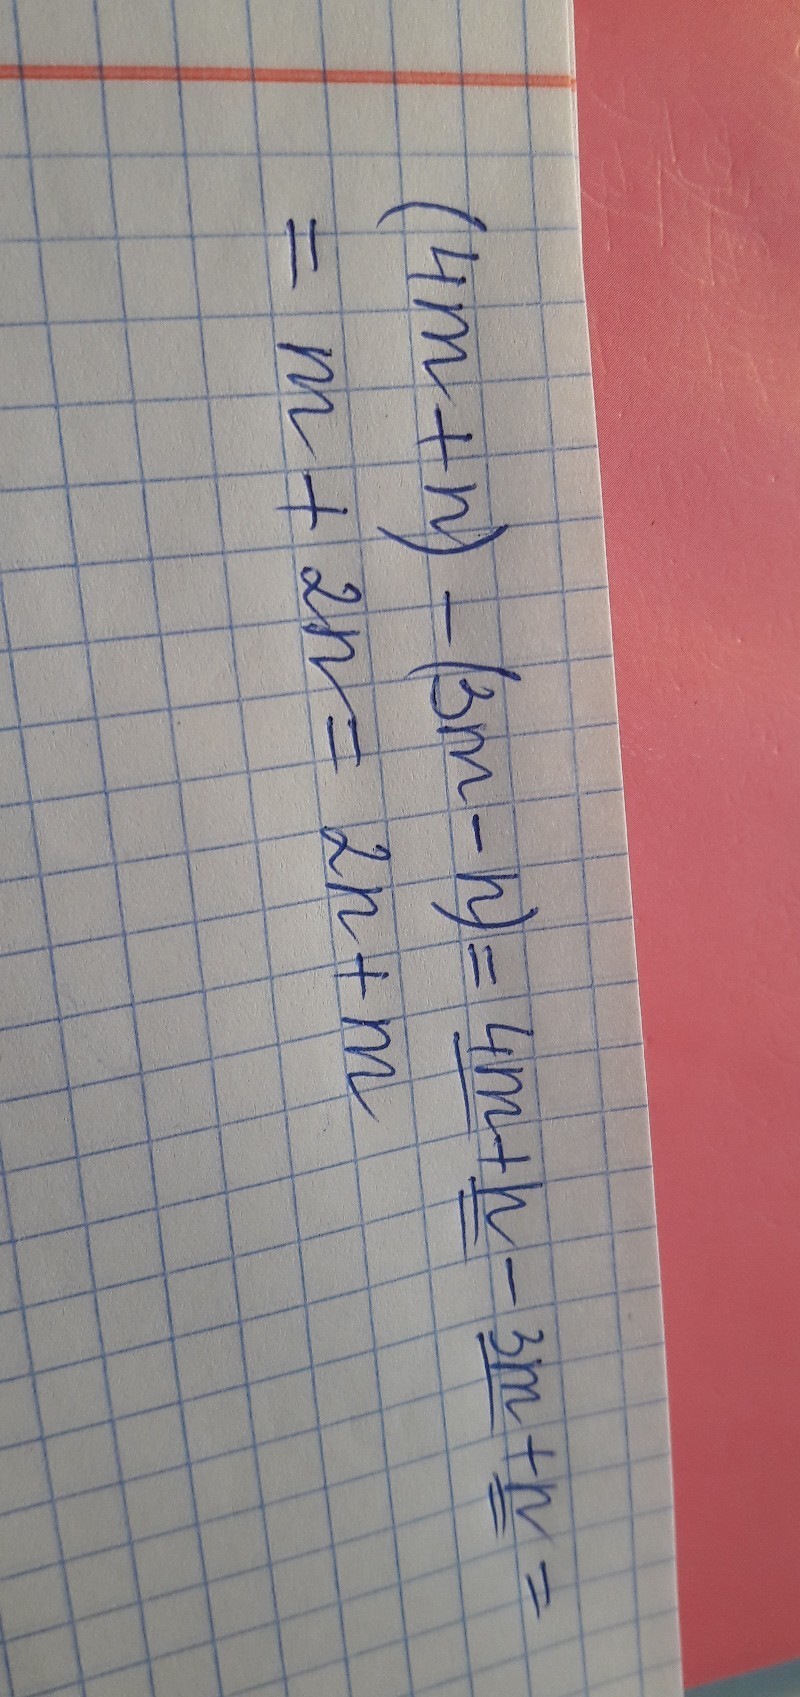 (4m+n)-(3m-n)=4m+n-3m+n=
=m+2n=2n+m